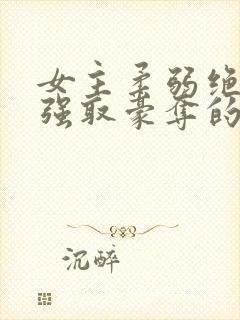 女主柔弱绝
强取豪夺的
沉醉